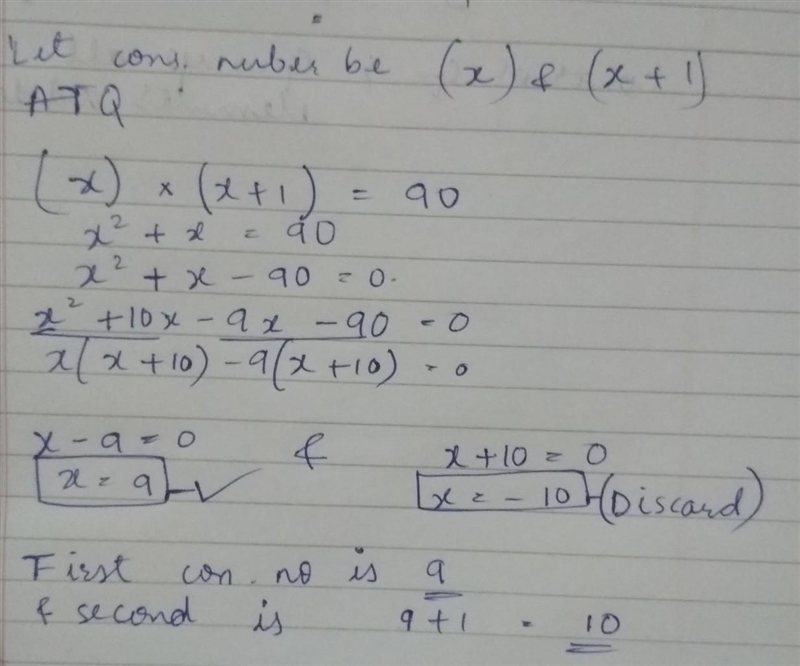 Let cons. nuber be (x) & (x + 1)
ATQ
(x) × (x+1) = 90
x² + x = 90
x² + x - 90 = 0.
x² + 10x - 9x - 90 = 0
x(x+10) - 9(x+10) = 0
x - 9 = 0 & x + 10 = 0
x = 9 ✓ x = - 10 (Discard)
First con. no is 9
& second is 9 + 1 = 10